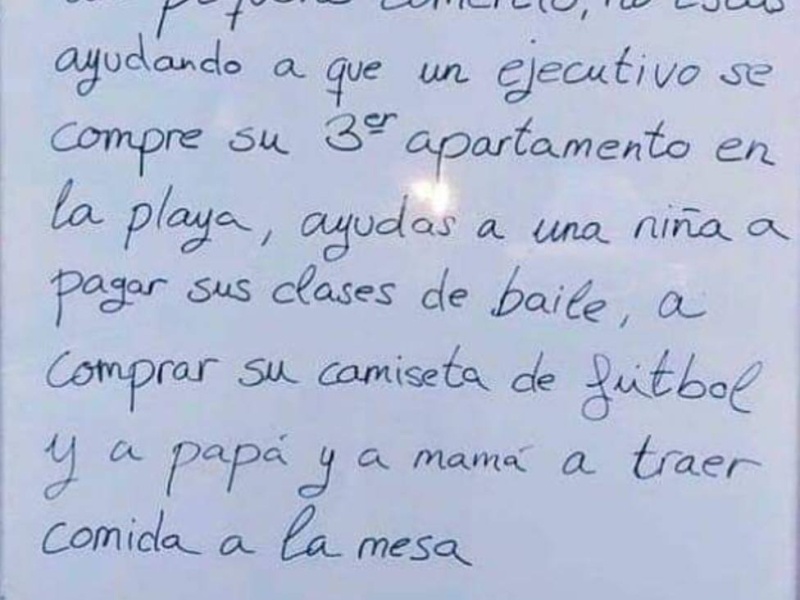 pequeño comercio, no estás
ayudando a que un ejecutivo se
compre su 3er apartamento en
la playa, ayudas a una niña a
pagar sus clases de baile, a
comprar su camiseta de fútbol
y a papá y a mamá a traer
comida a la mesa